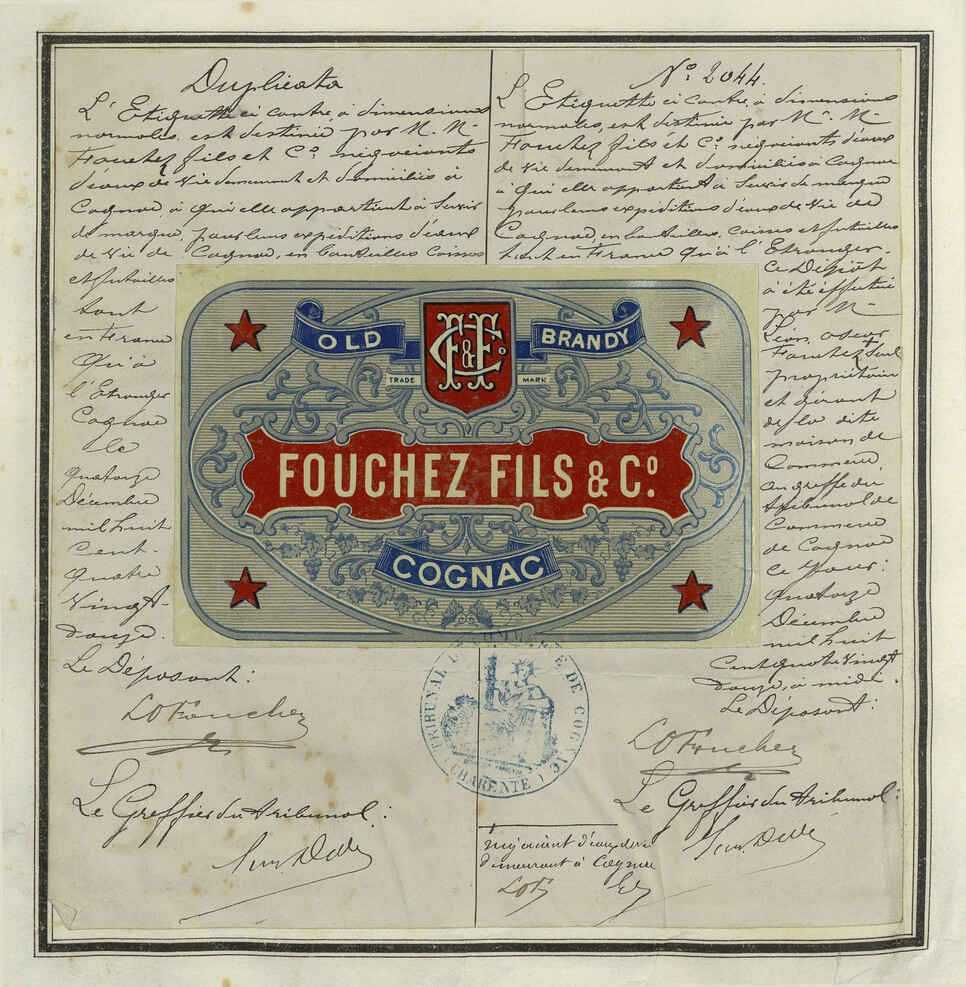 Duplicata
L'Etiquette ci contre, à dimensions
normales, est destinée par M. M.
Fouchez fils et Cº. négociants
d'eaux de vie demeurant et domiciliés à
Cognac, à qui elle appartient à Servir
de marque, pour leurs expéditions d'eaux
de vie de Cognac, en bouteilles Caisses
et futailles
tant
en France
qu'à
l'Etranger
Cognac
le
quatorze
Décembre
mil huit
Cent-
quatre
Vingt-
douze.
Le Déposant:
LO Fouchez
Le Greffier du tribunal:
Nº 2044.
L'Etiquette ci contre, à dimensions
normales, est destinée par M. M.
Fouchez fils et Cº. négociants d'eaux
de vie demeurant et domiciliés à Cognac
à qui elle appartient à Servir de marque
pour leurs expéditions d'eaux de vie de
Cognac, en bouteilles, caisses et futailles
tant en France qu'à l'Etranger.
Ce Dépôt
à été effectué
par M.
Léon, oscar
Fouchez, Seul
propriétaire
et gérant
de la dite
maison de
Commerce,
au greffe du
tribunal de
Commerce
de Cognac
Ce Jour:
Quatorze
Décembre
mil huit
Cent quatre Vingt
douze, à midi.
Le Déposant:
LO Fouchez
Le Greffier du tribunal:
négociant d'eaux de vie
demeurant à Cognac
LOF
OLD
BRANDY
F & Cº
TRADE
MARK
FOUCHEZ FILS & Cº.
COGNAC
TRIBUNAL DE COMMERCE DE COGNAC
(CHARENTE)